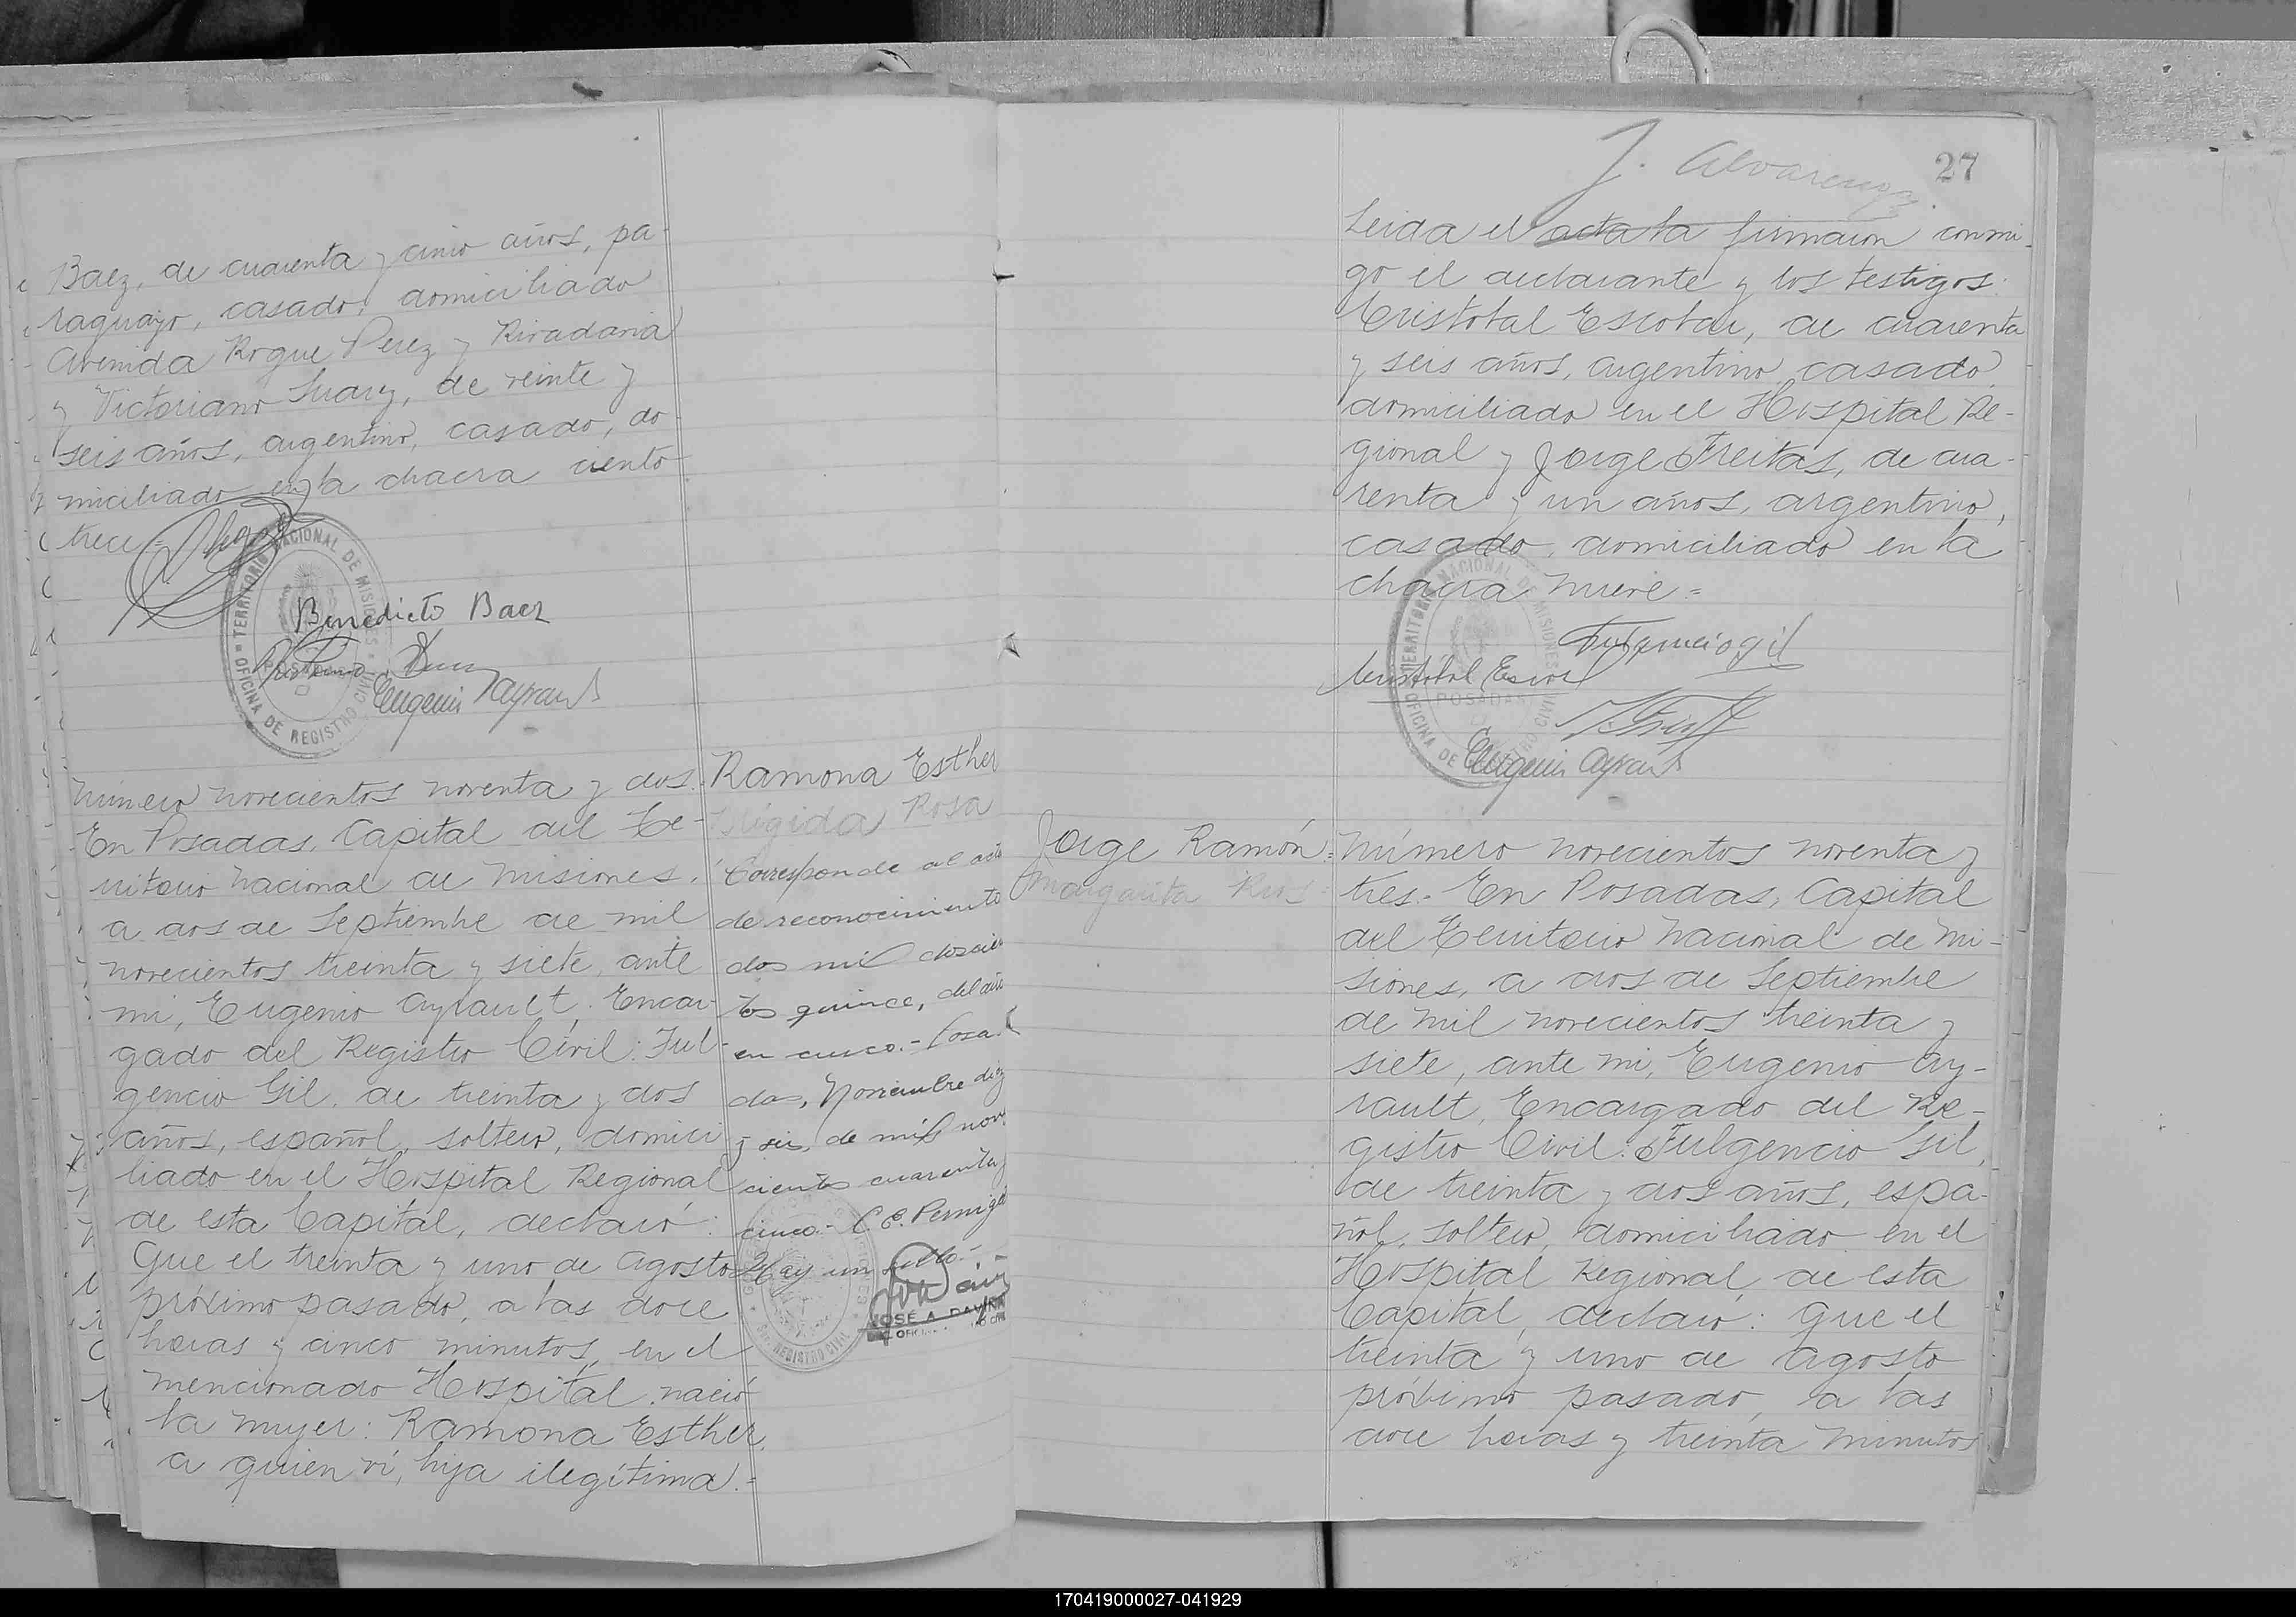 Baez, de cuarenta y cinco años, pa-
raguayo, casado, domiciliado
Avenida Roque Perez y Rivadavia
y Victoriano Suarez, de veinte y
seis años, argentino, casado, do-
miciliado en la chacra ciento
trece=
TERRITORIO NACIONAL DE MISIONES
OFICINA DE REGISTRO CIVIL
POSADAS
Benedicto Baez
Eugenio Ayrault
Número novecientos noventa y dos.
En Posadas, Capital del Te-
rritorio Nacional de Misiones,
a dos de Septiembre de mil
novecientos treinta y siete, ante
mí, Eugenio Ayrault, Encar-
gado del Registro Civil: Ful-
gencio Gil, de treinta y dos
años, español, soltero, domici
liado en el Hospital Regional
de esta Capital, declaró:
Que el treinta y uno de Agosto
próximo pasado, a las doce
horas y cinco minutos, en el
mencionado Hospital, nació
la mujer: Ramona Esther,
a quien ví, hija ilegítima.=
Ramona Esther
Brígida Rosa
Corresponde al acta
de reconocimiento
dos mil doscien
tos quince, del año
en curso.- Posa-
das, Noviembre diez
y seis, de mil nove
cientos cuarenta y
cinco.- C. E. Pernigo
Hay un sello.-
REGISTRO CIVIL
JOSÉ A. DAVIÑA
27
J. Alvarenga
Leida el acta la firmaron conmi-
go el declarante y los testigos:
Cristobal Escobar, de cuarenta
y seis años, argentino, casado,
domiciliado en el Hospital Re-
gional y Jorge Freitas, de cua-
renta y un años, argentino,
casado, domiciliado en la
chacra nueve=
TERRITORIO NACIONAL DE MISIONES
OFICINA DE REGISTRO CIVIL
POSADAS
Fulgencio Gil
Cristobal Escobar
Eugenio Ayrault
Jorge Ramón
Margarita Rios
Número novecientos noventa y
tres.- En Posadas, Capital
del Territorio Nacional de Mi-
siones, a dos de Septiembre
de mil novecientos treinta y
siete, ante mí, Eugenio Ay-
rault, Encargado del Re-
gistro Civil: Fulgencio Gil,
de treinta y dos años, espa-
ñol, soltero, domiciliado en el
Hospital Regional de esta
Capital, declaró: Que el
treinta y uno de Agosto
próximo pasado, a las
doce horas y treinta minutos
170419000027-041929